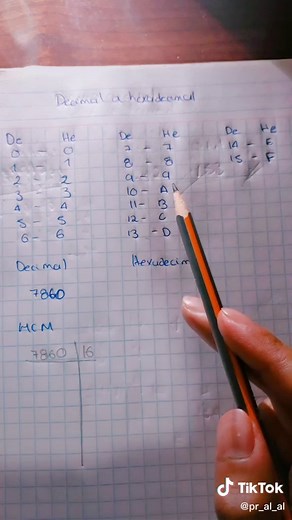 Decimal a hexadecimal
De He
0 - 0
1 - 1
2 - 2
3 - 3
4 - 4
5 - 5
6 - 6
De He
7 - 7
8 - 8
9 - 9
10 - A
11 - B
12 - C
13 - D
De He
14 - E
15 - F
Decimal Hexadecim
7860
MCM
7860 16
TikTok
@pr_al_al